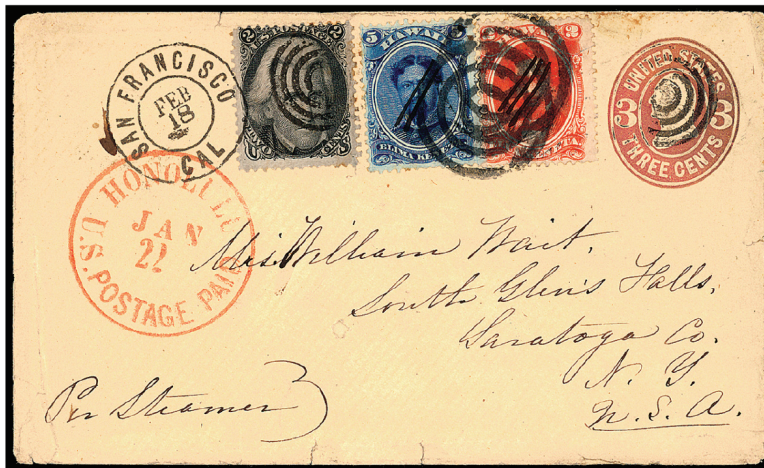 SAN FRANCISCO
FEB
18
CAL
U.S. POSTAGE
2 2
5 HAWAII
ELUA KENETA
2
UNITED STATES
3 3
THREE CENTS
HONOLULU
JAN
22
U.S. POSTAGE PAID
Mrs William Wait,
South Glen's Falls,
Saratoga Co.
N. Y.
U. S. A.
Per Steamer